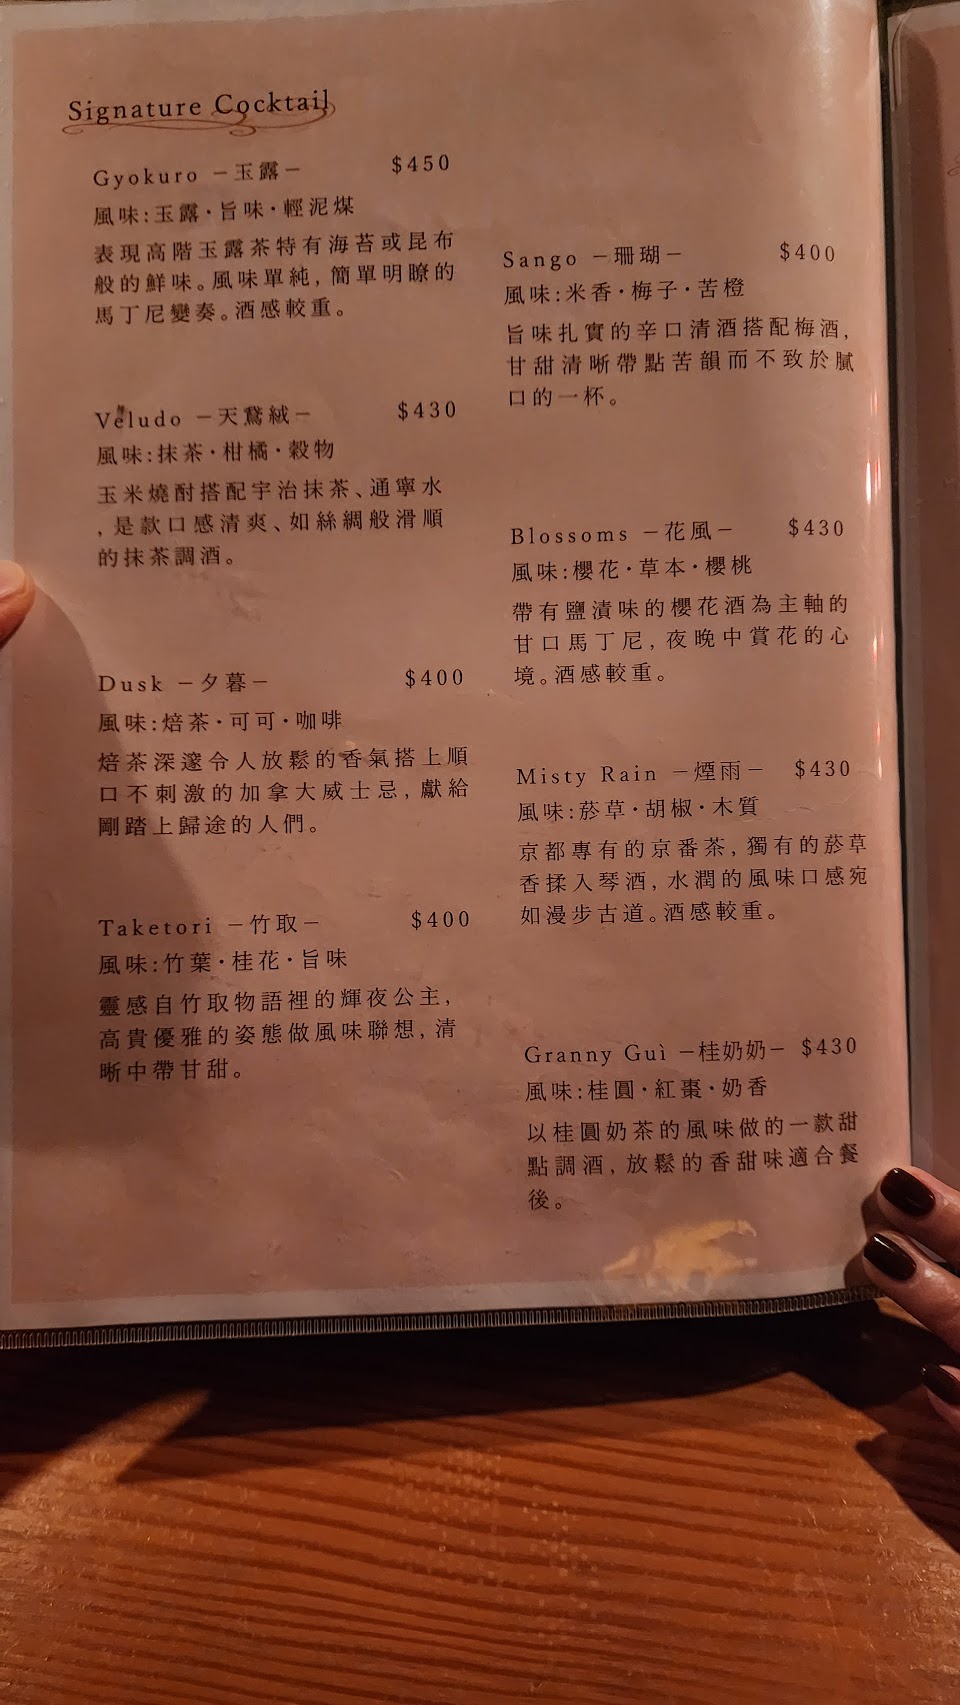 Signature Cocktail
Gyokuro －玉露－ $450
風味:玉露·旨味·輕泥煤
表現高階玉露茶特有海苔或昆布
般的鮮味。風味單純, 簡單明瞭的
馬丁尼變奏。酒感較重。
Veludo －天鵞絨－ $430
風味:抹茶·柑橘·穀物
玉米燒酎搭配宇治抹茶、通寧水
, 是款口感清爽、如絲綢般滑順
的抹茶調酒。
Dusk －夕暮－ $400
風味:焙茶·可可·咖啡
焙茶深邃令人放鬆的香氣搭上順
口不刺激的加拿大威士忌, 獻給
剛踏上歸途的人們。
Taketori －竹取－ $400
風味:竹葉·桂花·旨味
靈感自竹取物語裡的輝夜公主,
高貴優雅的姿態做風味聯想, 清
晰中帶甘甜。
Sango －珊瑚－ $400
風味:米香·梅子·苦橙
旨味扎實的辛口清酒搭配梅酒,
甘甜清晰帶點苦韻而不致於膩
口的一杯。
Blossoms －花風－ $430
風味:櫻花·草本·櫻桃
帶有鹽漬味的櫻花酒為主軸的
甘口馬丁尼, 夜晚中賞花的心
境。酒感較重。
Misty Rain －煙雨－ $430
風味:菸草·胡椒·木質
京都專有的京番茶, 獨有的菸草
香揉入琴酒, 水潤的風味口感宛
如漫步古道。酒感較重。
Granny Guì －桂奶奶－ $430
風味:桂圓·紅棗·奶香
以桂圓奶茶的風味做的一款甜
點調酒, 放鬆的香甜味適合餐
後。